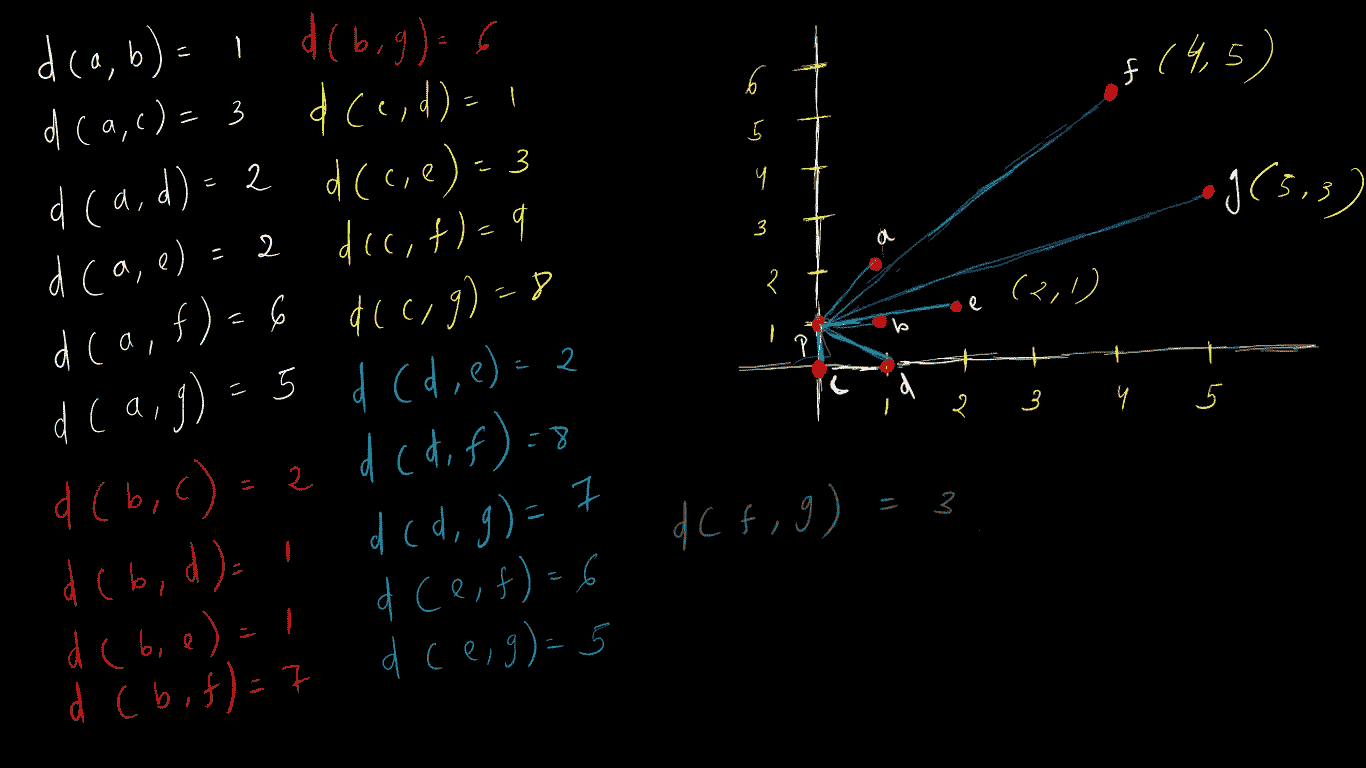 d(a,b) = 1
d(a,c) = 3
d(a,d) = 2
d(a,e) = 2
d(a,f) = 6
d(a,g) = 5
d(b,c) = 2
d(b,d) = 1
d(b,e) = 1
d(b,f) = 7
d(b,g) = 6
d(c,d) = 1
d(c,e) = 3
d(c,f) = 9
d(c,g) = 8
d(d,e) = 2
d(d,f) = 8
d(d,g) = 7
d(e,f) = 6
d(e,g) = 5
d(f,g) = 3
6
5
4
3
2
1
f (4,5)
g (5,3)
a
e (2,1)
b
P
c
d
1
2
3
4
5